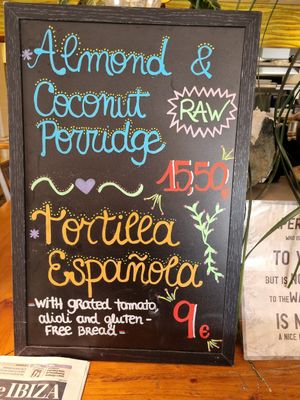 Almond &
Coconut
Porridge
RAW
15,50
Tortilla
Española
-with grated tomato,
alioli and gluten-
free bread-
9€
IBIZA
TO
BUT IS
TO THE
IS N
A NICE